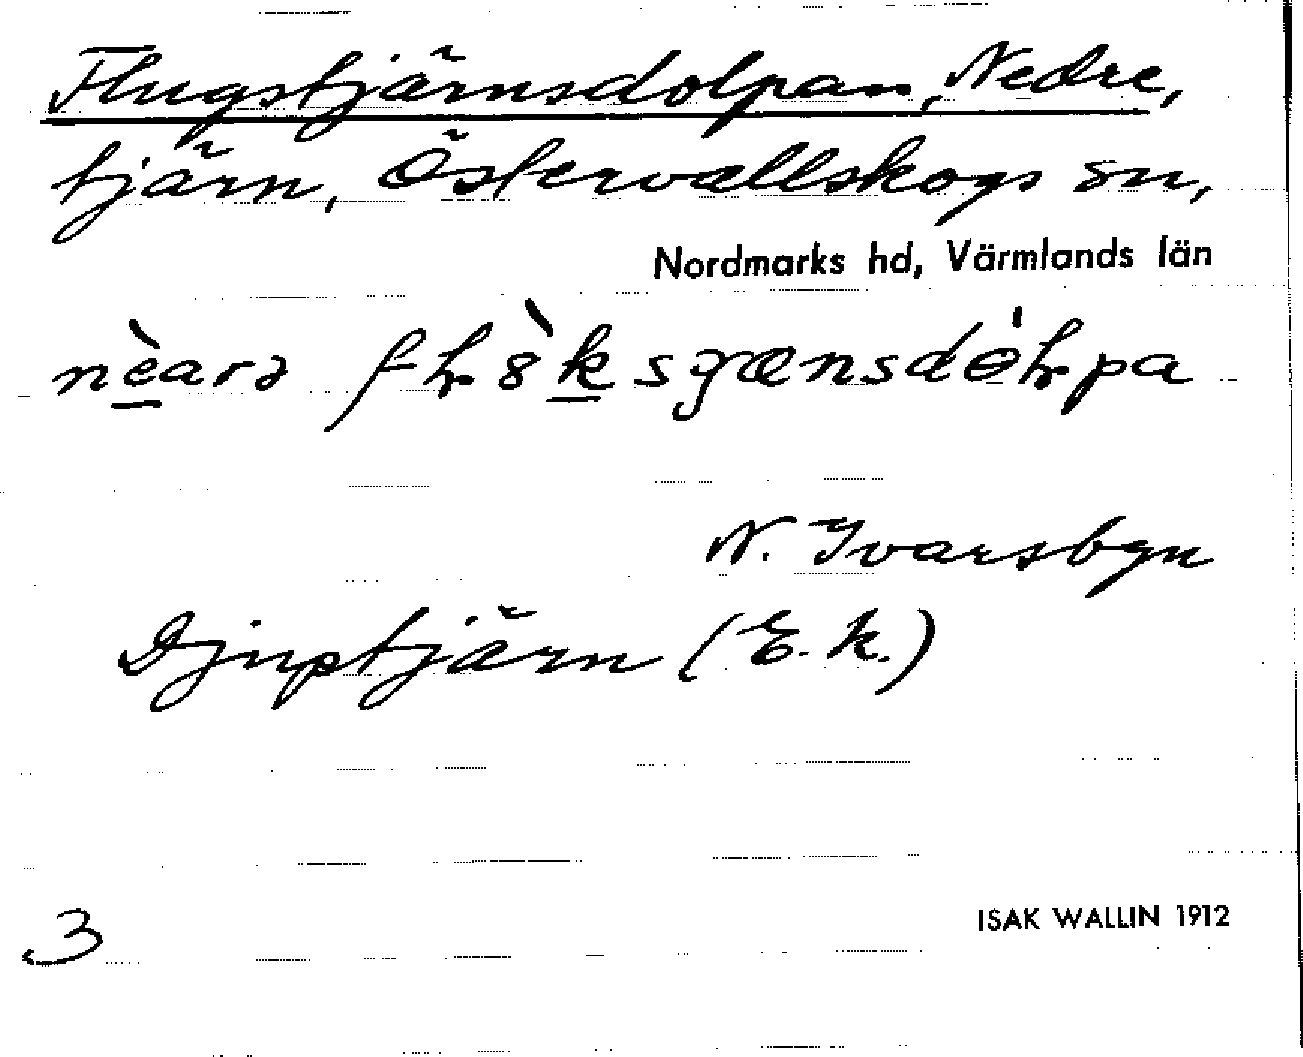 Flugstjärnsdolpan, Nedre,
tjärn, Östervallskogs sn,
Nordmarks hd, Värmlands län
N. Ivarsbyn
Djuptjärn (E.k.)
3
ISAK WALLIN 1912